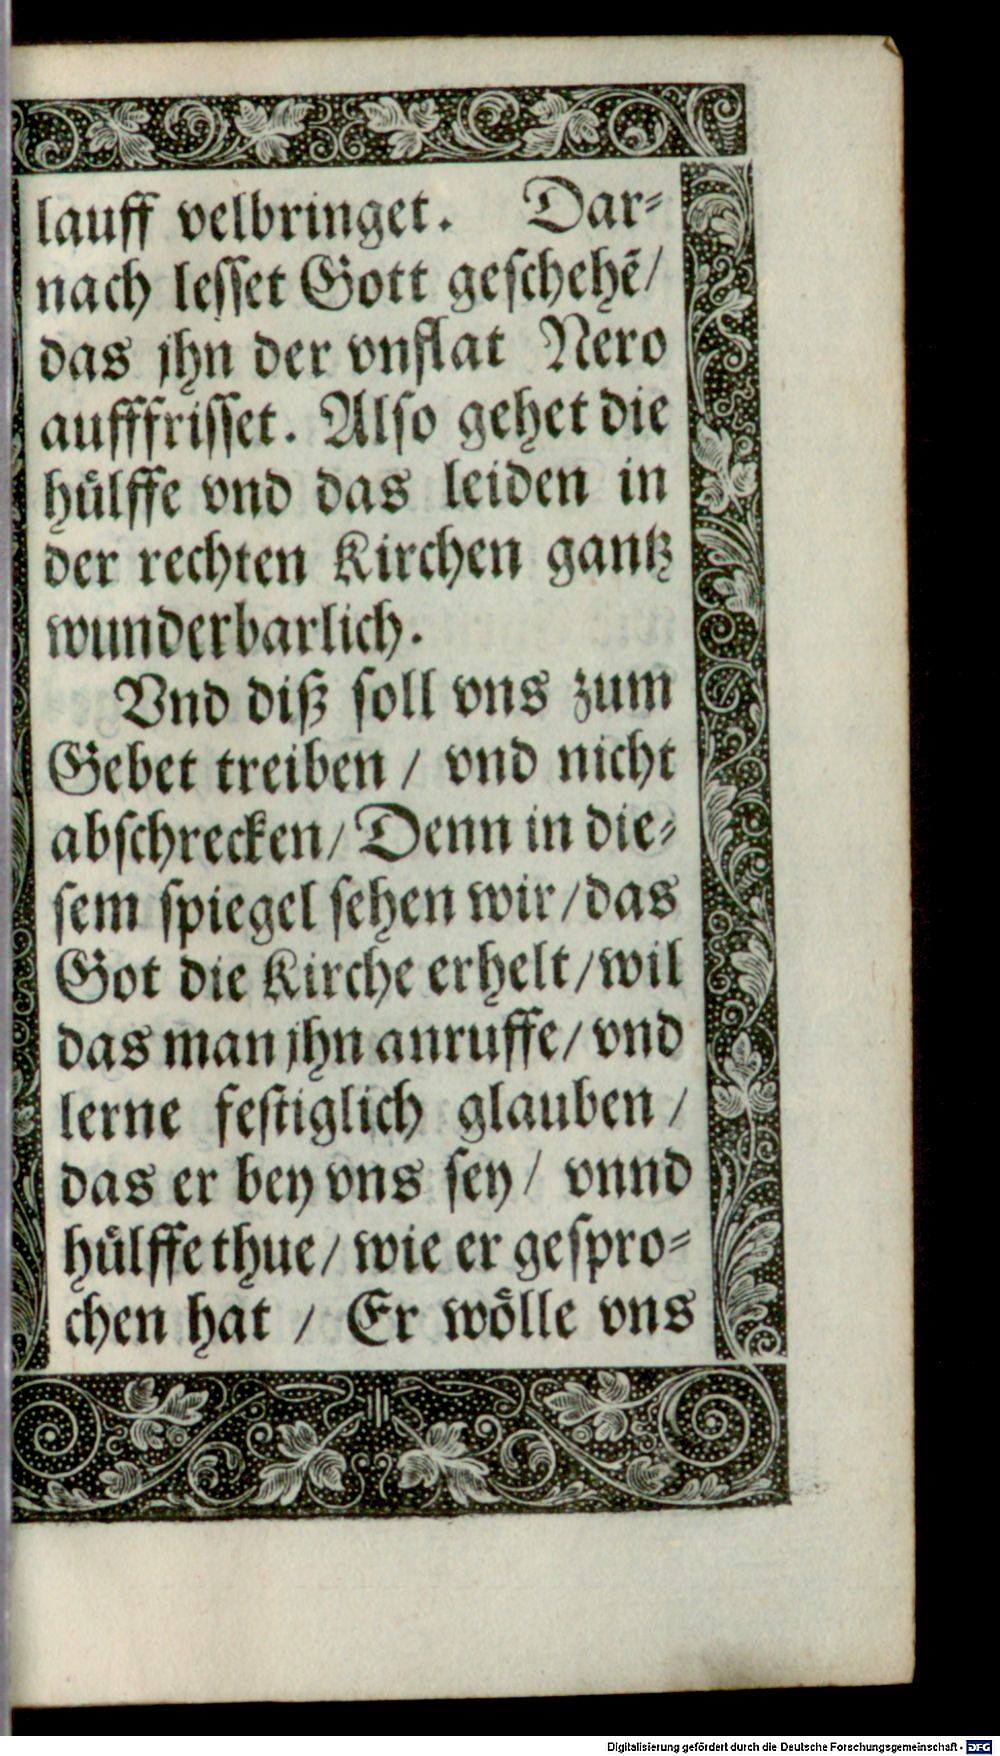 lauff velbringet. Dar⸗
nach lesset Gott geschehē/
das jhn der vnflat Nero
aufffrisset. Also gehet die
huͤlffe vnd das leiden in
der rechten Kirchen gantz
wunderbarlich.
Vnd diß soll vns zum
Gebet treiben / vnd nicht
abschrecken/ Denn in die⸗
sem spiegel sehen wir /das
Got die Kirche erhelt/wil
das man jhn anruffe/ vnd
lerne festiglich glauben /
das er bey vns sey/ vnnd
huͤlffe thue/ wie er gespro⸗
chen hat / Er woͤlle vns
Digitalisierung gefördert durch die Deutsche Forschungsgemeinschaft - DFG